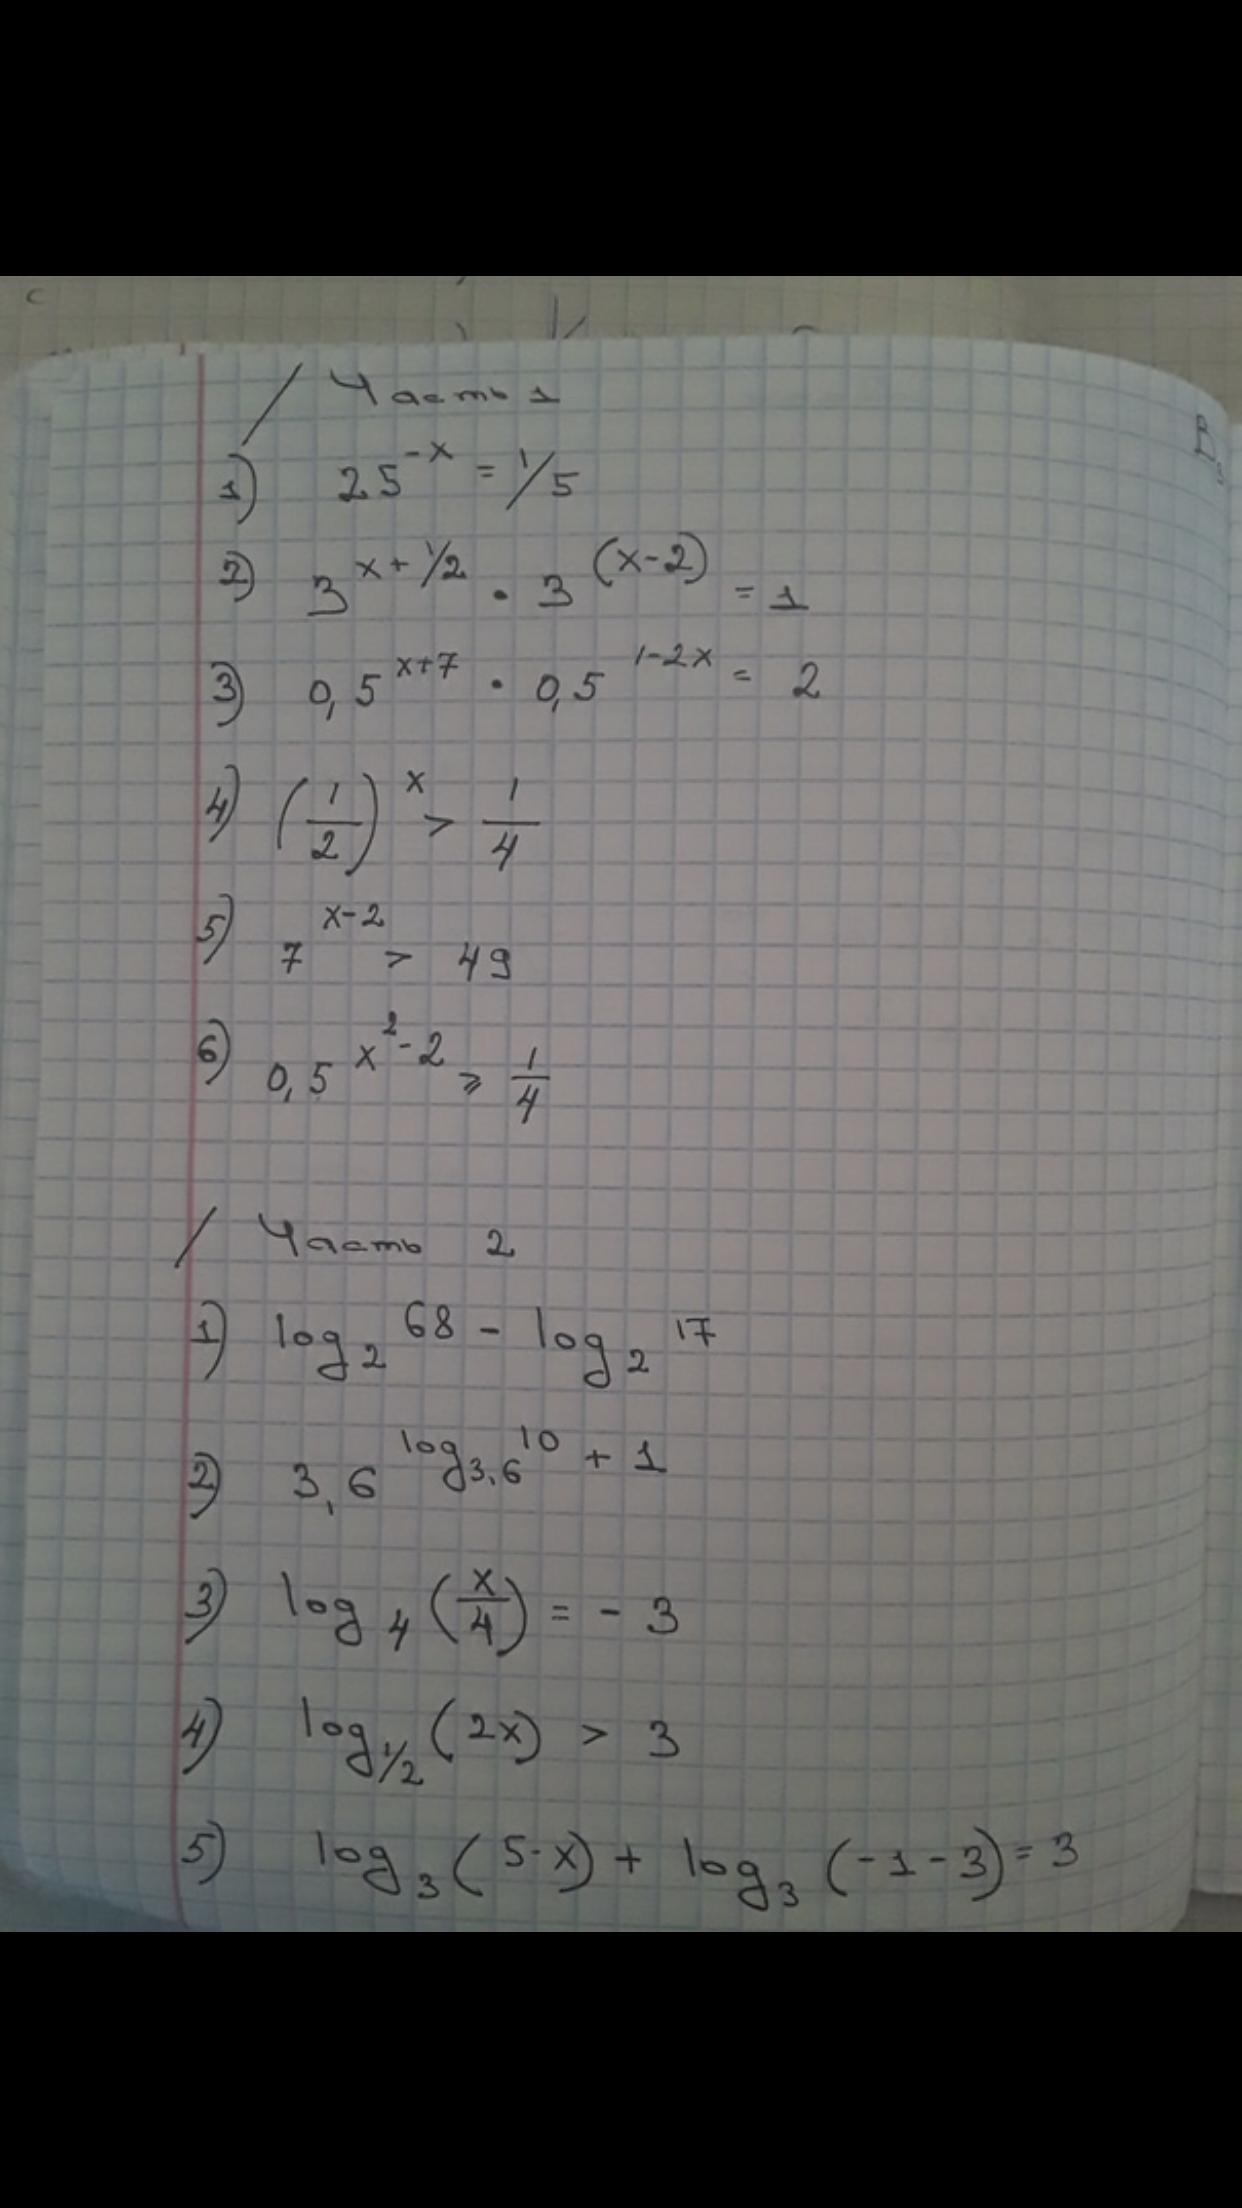 Часть 1
1) 25^{-x} = 1/5
2) 3^{x + 1/2} · 3^{(x-2)} = 1
3) 0,5^{x+7} · 0,5^{1-2x} = 2
4) (1/2)^x > 1/4
5) 7^{x-2} > 49
6) 0,5^{x^2-2} ⩾ 1/4
Часть 2
1) log_2 68 - log_2 17
2) 3,6^{log_{3,6} 10 + 1}
3) log_4 (x/4) = - 3
4) log_{1/2} (2x) > 3
5) log_3 (5-x) + log_3 (-1-3) = 3